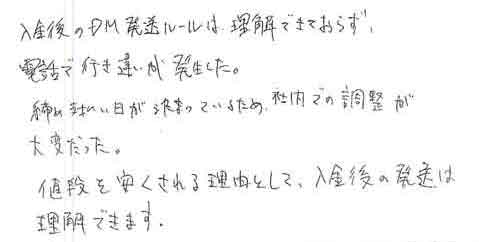 入金後のDM発送ルールは、理解できておらず、
電話で行き違いが発生した。
締め支払い日が決まっているため、社内での調整が
大変だった。
値段を安くされる理由として、入金後の発送は
理解できます。